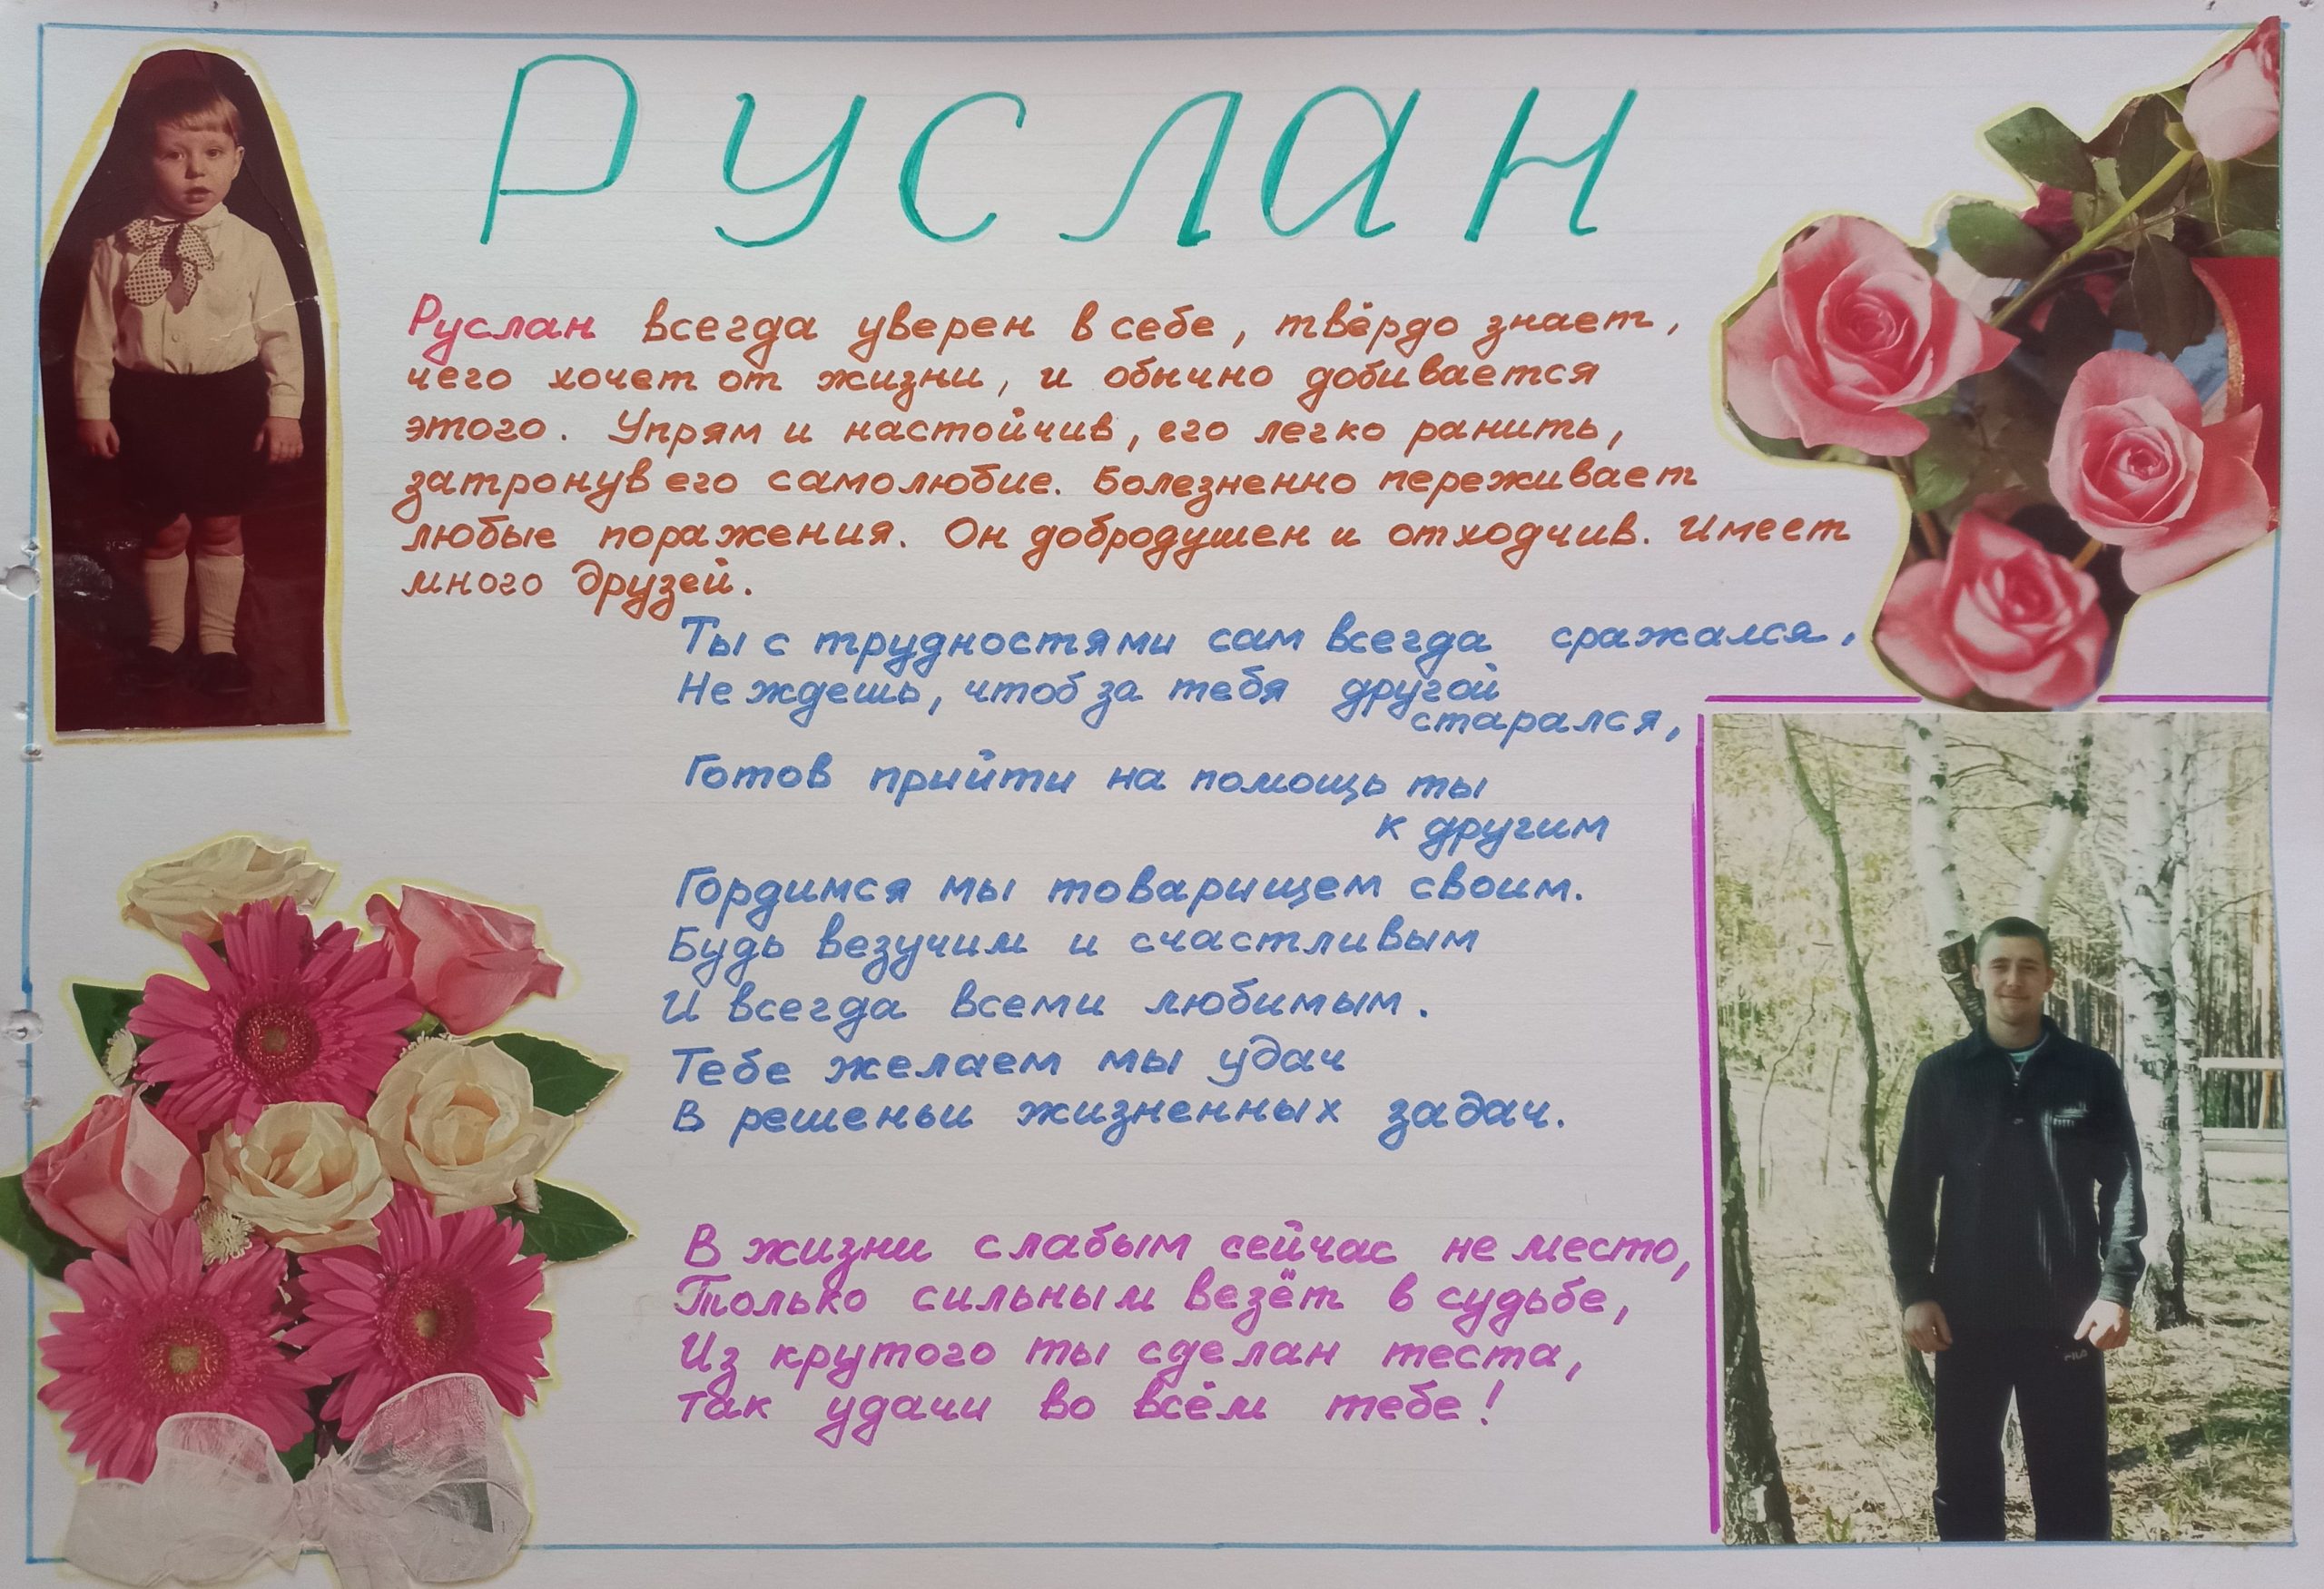 РУСЛАН
Руслан всегда уверен в себе, твёрдо знает,
чего хочет от жизни, и обычно добивается
этого. Упрям и настойчив, его легко ранить,
затронув его самолюбие. Болезненно переживает
любые поражения. Он добродушен и отходчив. Имеет
много друзей.
Ты с трудностями сам всегда сражался,
Не ждешь, чтоб за тебя другой
старался,
Готов прийти на помощь ты
к другим
Гордимся мы товарищем своим.
Будь везучим и счастливым
И всегда всеми любимым.
Тебе желаем мы удач
В решеньи жизненных задач.
В жизни слабым сейчас не место,
Только сильным везёт в судьбе,
Из крутого ты сделан теста,
так удачи во всём тебе!
FILA